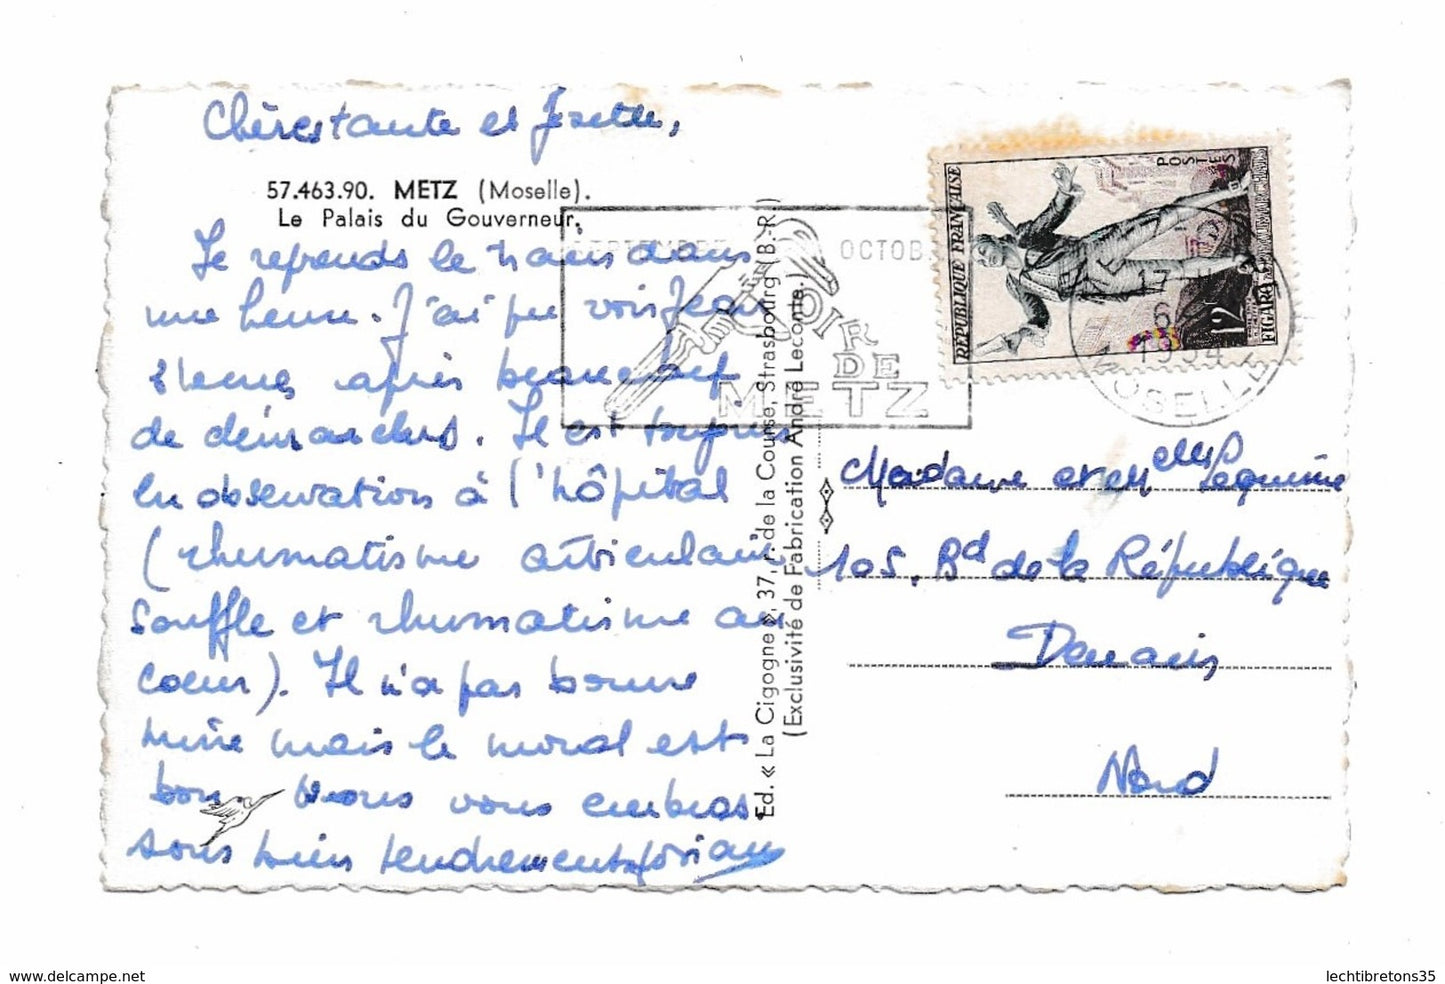 Chère tante et Josette,
57.463.90. METZ (Moselle).
Le Palais du Gouverneur.
Je reprends le train dans
une heure. J'ai pu voir Jean
après beaucoup
de démarches. Il est toujours
en observation à l'hôpital
(rhumatisme articulaire
souffle et rhumatisme au
coeur). Il n'a pas bonne
mine mais le moral est
bon. Nous vous embras
sons bien tendrement
Ed. « La Cigogne », 37, r. de la Course, Strasbourg (B.-R.)
(Exclusivité de Fabrication André Leconte.)
OCTOB
FOIR
DE
METZ
RÉPUBLIQUE FRANÇAISE
POSTES
12F
FIGARO
6
1954
MOSELLE
Madame et Melle Lequime
105. Bd de la République
Denain
Nord
www.delcampe.net
lechtibretons35